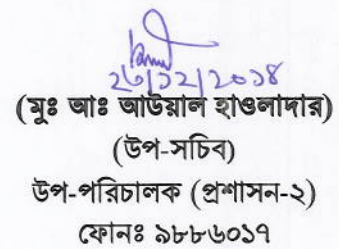 ২৩/১২/২০১৪
(মুঃ আঃ আউয়াল হাওলাদার)
(উপ-সচিব)
উপ-পরিচালক (প্রশাসন-২)
ফোনঃ ৯৮৮৬০১৭